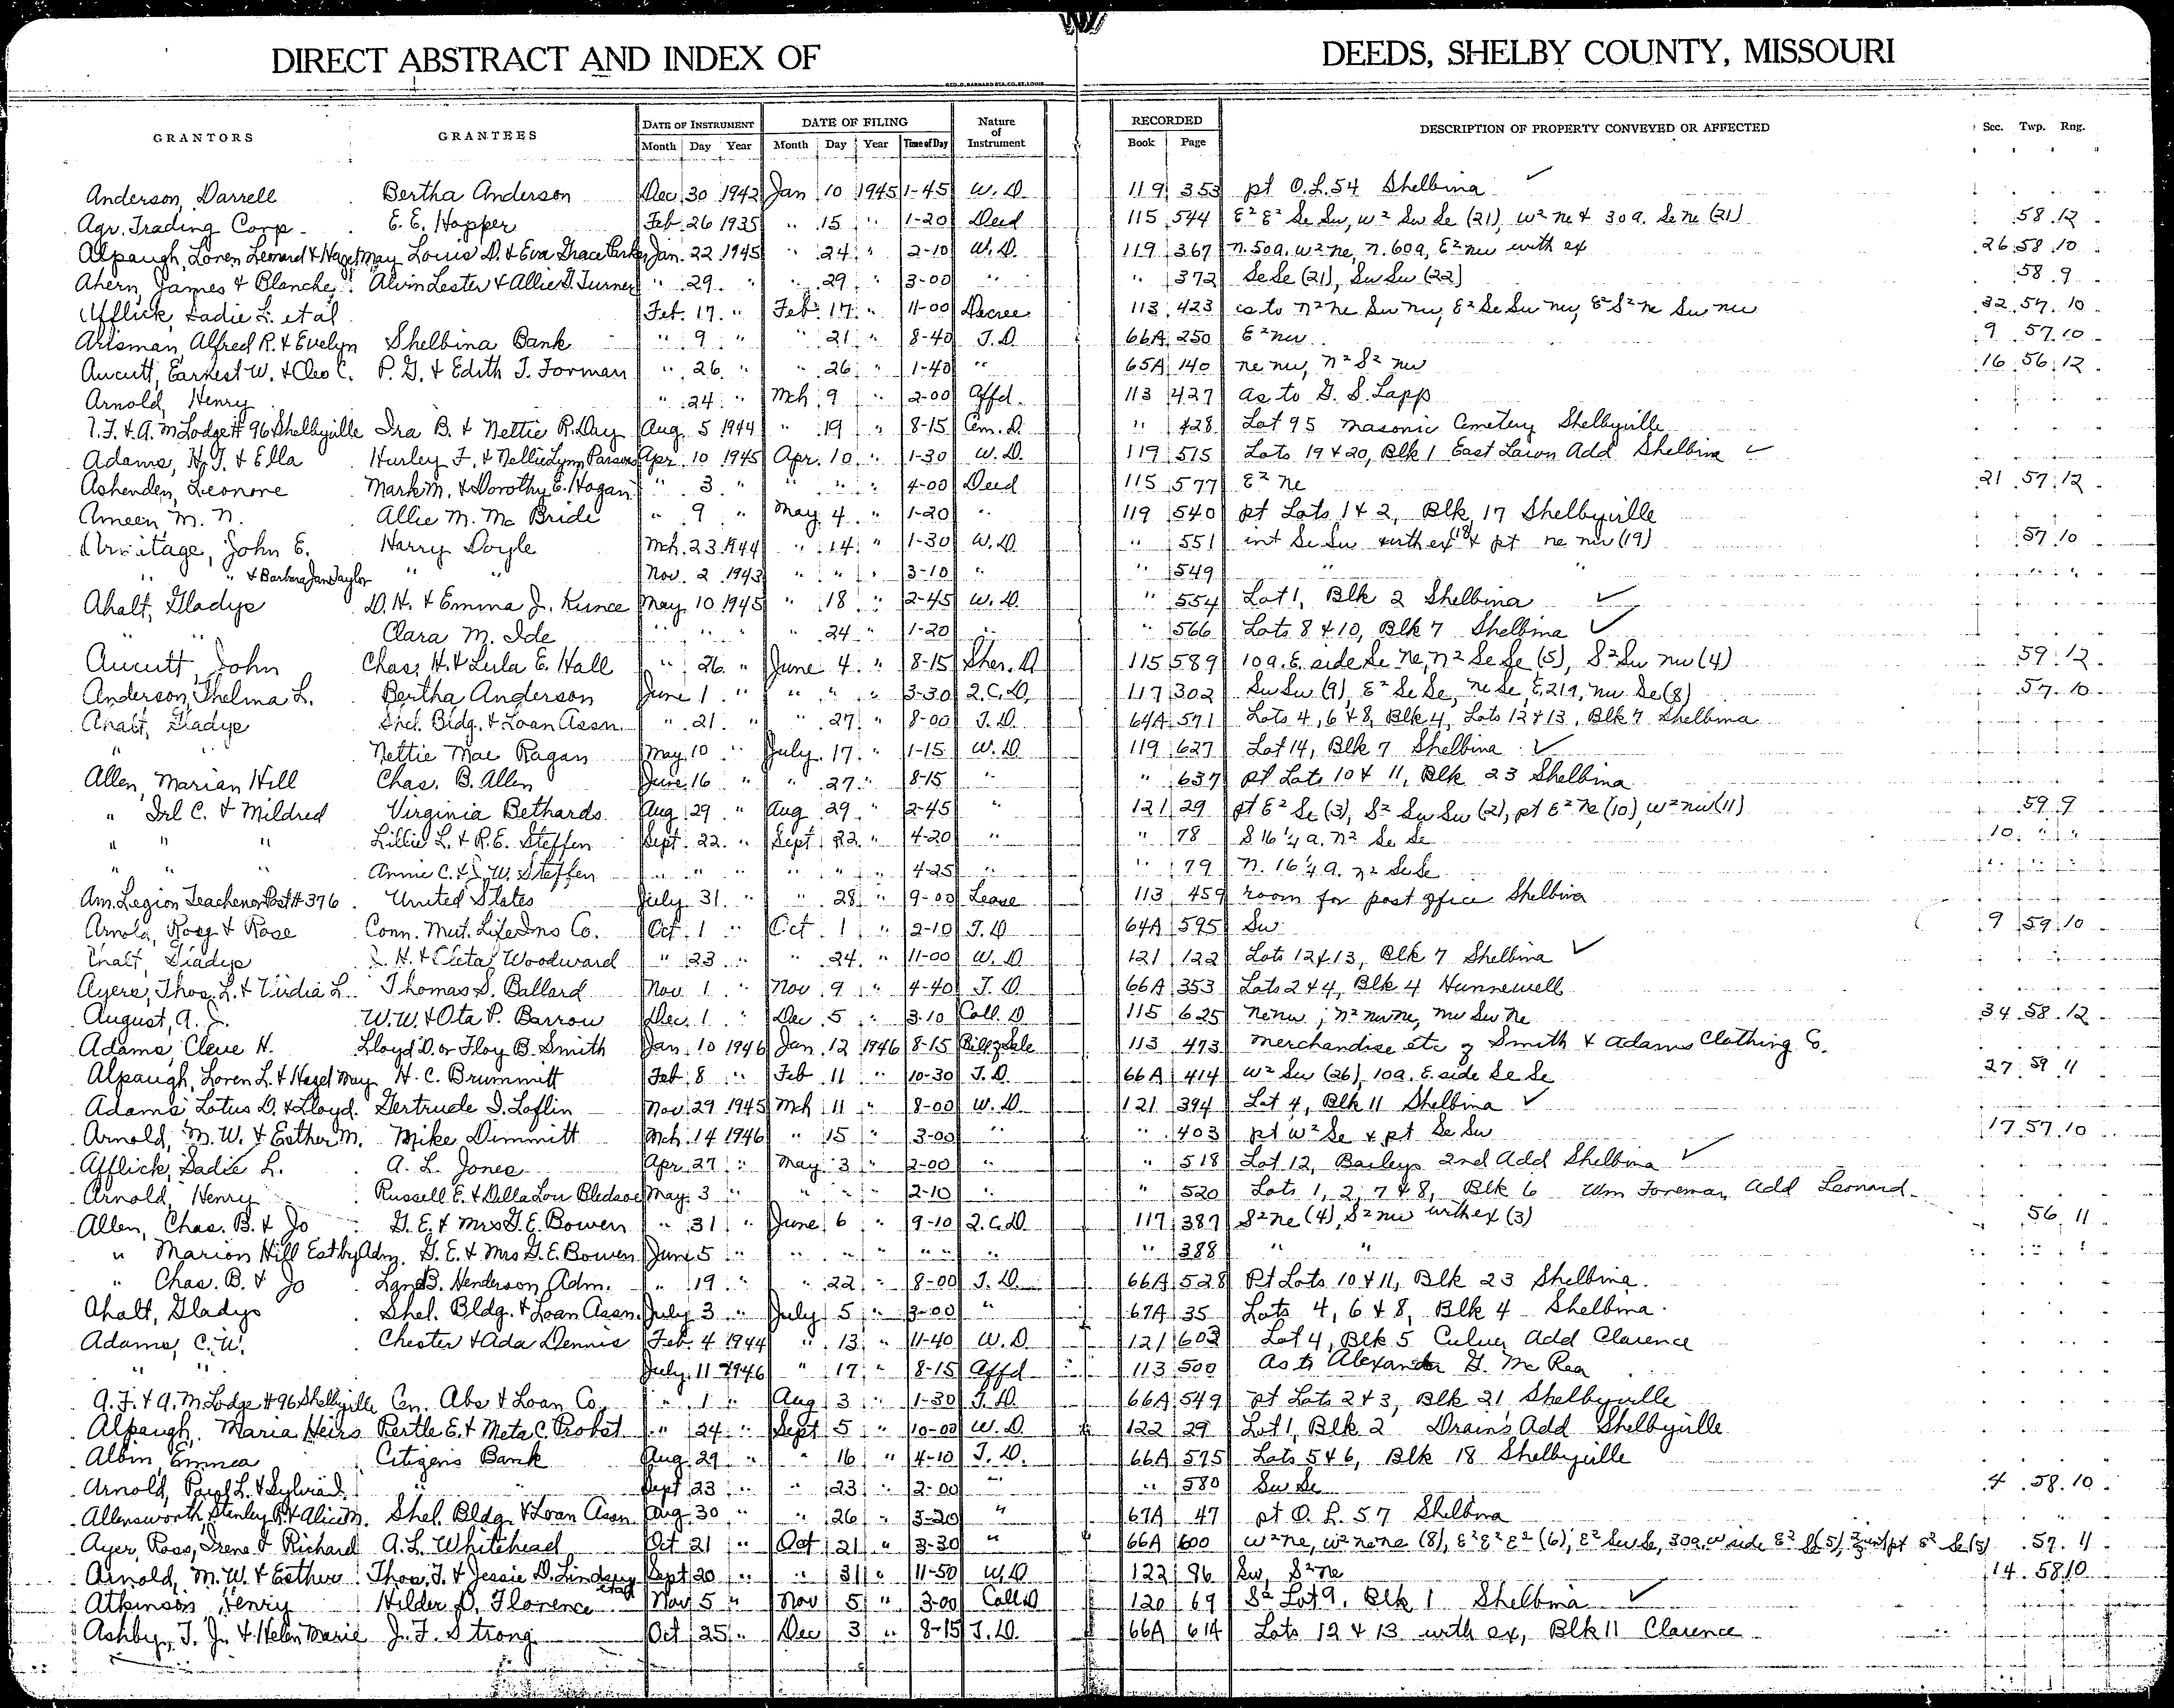 DIRECT ABSTRACT AND INDEX OF DEEDS, SHELBY COUNTY, MISSOURI
GRANTORS GRANTEES DATE OF INSTRUMENT DATE OF FILING Nature of Instrument RECORDED DESCRIPTION OF PROPERTY CONVEYED OR AFFECTED Sec. Twp. Rng.
Month Day Year Month Day Year Time of Day Book Page
Anderson, Darrell Bertha Anderson Dec 30 1942 Jan 10 1945 1-45 W.D. 119 353 pt O.L. 54 Shelbina ✓
Agr. Trading Corp. E. E. Hopper Feb 26 1935 " 15 " 1-20 Deed 115 544 E² E² Se Sw, W² Sw Se (21), W² ne & 30a. Se ne (21) 58 12
Alpaugh, Loren Leonard & Hazel May Louis D. & Eva Grace Parker Jan. 22 1945 " 24 " 2-10 W.D. 119 367 n. 50a. W² ne, n. 60a, E² nw with ex 26 58 10
Ahern, James & Blanche Alvin Lester & Allie D. Turner " 29 " " 29 " 3-00 " " 372 Se Se (21), Sw Sw (22) 58 9
Afflick, Sadie L. et al Feb. 17 " Feb. 17 " 11-00 Decree 113 423 as to N² ne Sw nw, E² Se Sw nw, E² S² ne Sw nw 32 57 10
Arisman, Alfred R. & Evelyn Shelbina Bank " 9 " " 21 " 8-40 T.D. 66A 250 E² nw 9 57 10
Aucutt, Earnest W. & Cleo C. P. G. & Edith T. Forman " 26 " " 26 " 1-40 " 65A 140 ne nw, N² S² nw 16 56 12
Arnold, Henry " 24 " Mch 9 " 2-00 Affd. 113 427 as to G. S. Lapp
A.F. & A.M Lodge # 96 Shelbyville Ira B. & Nettie R. Day Aug 5 1944 " 19 " 8-15 Cem. D. " 428 Lot 95 Masonic Cemetery Shelbyville
Adams, H. T. & Ella Hurley F. & Nellie Lynn Parsons Apr. 10 1945 Apr. 10 " 1-30 W.D. 119 515 Lots 19 & 20, Blk 1 East Lawn Add Shelbina ✓
Ashenden, Leonore Mark M. & Dorothy E. Hogan " 3 " " " " 4-00 Deed 115 577 E² Ne 21 57 12
Ameen, M. N. Allie M. Mc Bride " 9 " May 4 " 1-20 " 119 540 pt Lots 1 & 2, Blk 17 Shelbyville
Armitage, John E. Harry Doyle Mch. 23 1944 " 14 " 1-30 W.D. " 551 int Se Sw with ex (18) & pt ne nw (19) 57 10
" " & Barbara Jan Taylor " " Nov. 2 1943 " " " 3-10 " " 549 " " " "
Ahalt, Gladys D. H. & Emma J. Kunce May 10 1945 " 18 " 2-45 W.D. " 554 Lot 1, Blk 2 Shelbina ✓
" " Clara M. Ide " " " " 24 " 1-20 " " 566 Lots 8 & 10, Blk 7 Shelbina ✓
Aucutt, John Chas. H. & Lula E. Hall " 26 " June 4 " 8-15 Sher. D 115 589 10a. E. side Se Ne, n² Se Se (5), S² Sw nw (4) 59 12
Anderson, Thelma L. Bertha Anderson June 1 " " " " 3-30 Q.C.D. 117 302 Sw Sw (9), E² Se Se, ne Se, E 21a, nw Se (8) 57 10
Ahalt, Gladys Shel. Bldg. & Loan Assn. " 21 " " 27 " 8-00 T.D. 64A 571 Lots 4, 6 & 8, Blk 4, Lots 12 & 13, Blk 7 Shelbina
" " Nettie Mae Ragan May 10 " July 17 " 1-15 W.D. 119 627 Lot 14, Blk 7 Shelbina ✓
Allen, Marian Hill Chas. B. Allen June 16 " " 27 " 8-15 " " 637 pt Lots 10 & 11, Blk 23 Shelbina
" Irl C. & Mildred Virginia Bethards Aug 29 " Aug 29 " 2-45 " 121 29 pt E² Se (3), S² Sw Sw (2), pt E² Ne (10), W² nw (11) 59 9
" " " Lillie L. & R. E. Steffen Sept 22 " Sept 22 " 4-20 " " 78 S 16¼ a. N² Se Se 10 " "
" " " Annie C. & J. W. Steffen " " " " " " 4-25 " " 79 N. 16¼ a. N² Se Se " " "
Am. Legion Teachenor Post # 376 United States July 31 " " 28 " 9-00 Lease 113 459 room for post office Shelbina
Arnold, Rosy & Rose Conn. Mut. Life Ins Co. Oct 1 " Oct 1 " 2-10 T.D 64A 595 Sw 9 59 10
Ahalt, Gladys J. H. & Cleta Woodward " 23 " " 24 " 11-00 W.D 121 122 Lots 12 & 13, Blk 7 Shelbina ✓
Ayers, Thos. L. & Virdia L. Thomas S. Ballard Nov 1 " Nov 9 " 4-40 T.D. 66A 353 Lots 2 & 4, Blk 4 Hunnewell
August, A. J. W. W. & Ota P. Barrow Dec 1 " Dec 5 " 3-10 Coll. D 115 625 ne nw, N² nw ne, nw Sw Ne 34 58 12
Adams, Cleve H. Lloyd D. or Floy B. Smith Jan 10 1946 Jan 12 1946 8-15 Bill of Sale 113 473 merchandise etc of Smith & Adams Clothing Co.
Alpaugh, Loren L. & Hazel May H. C. Brummitt Feb 8 " Feb 11 " 10-30 T.D. 66A 414 W² Sw (26), 10a. E. side Se Se 27 59 11
Adams Lotus D. & Lloyd Gertrude I. Loflin Nov 29 1945 Mch 11 " 8-00 W.D. 121 394 Lot 4, Blk 11 Shelbina ✓
Arnold, M. W. & Esther M. Mike Dimmitt Mch 14 1946 " 15 " 3-00 " " 403 pt W² Se & pt Se Sw 17 57 10
Afflick, Sadie L. A. L. Jones Apr 27 " May 3 " 2-00 " " 518 Lot 12, Baileys 2nd Add Shelbina ✓
Arnold, Henry Russell E. & Della Lou Bledsoe May 3 " " " " 2-10 " " 520 Lots 1, 2, 7 & 8, Blk 6 Wm Foreman Add Leonard
Allen, Chas. B. & Jo G. E. & Mrs G. E. Bowen " 31 " June 6 " 9-10 Q.C.D. 117 387 S² ne (4), S² nw with ex (3) 56 11
" Marion Hill Est by Adm. G. E. & Mrs G. E. Bowen June 5 " " " " " " " " 388 " " " "
" Chas. B. & Jo B. Henderson Adm. " 19 " " 22 " 8-00 T.D. 66A 528 Pt Lots 10 & 11, Blk 23 Shelbina.
Ahalt, Gladys Shel. Bldg. & Loan Assn. July 3 " July 5 " 3-00 " 67A 35 Lots 4, 6 & 8, Blk 4 Shelbina.
Adams, C. W. Chester & Ada Dennis Feb. 4 1944 " 13 " 11-40 W.D. 121 603 Lot 4, Blk 5 Culver Add Clarence
" " July 11 1946 " 17 " 8-15 Affd 113 500 As to Alexander G. Mc Rea
A.F. & A.M Lodge # 96 Shelbyville Cen. Abs & Loan Co. " 1 " Aug 3 " 1-30 T.D. 66A 549 pt Lots 2 & 3, Blk 21 Shelbyville
Alpaugh, Maria Heirs Pertle E. & Meta C. Probst " 24 " Sept 5 " 10-00 W.D 122 29 Lot 1, Blk 2 Drain's Add Shelbyville
Albin, Emma Citizens Bank Aug 29 " " 16 " 4-10 T.D. 66A 575 Lots 5 & 6, Blk 18 Shelbyville
Arnold, Paul L. & Sylvia D. " " Sept 23 " " 23 " 2-00 " " 580 Sw Se 4 58 10
Allensworth, Stanley R. & Alice M. Shel. Bldg. & Loan Assn Aug 30 " " 26 " 3-20 " 67A 47 pt O. L. 57 Shelbina
Ayer, Ross, Irene & Richard A. L. Whitehead Oct 21 " Oct 21 " 3-30 " 66A 600 W² ne, W² ne ne (8), E² E² E² (6), E² Sw Se, 30a. W side E² Se (5), pt S² Se (5) 57 11
Arnold, M. W. & Esther Thos. F. & Jessie D. Lindsey et al Sept 20 " " 31 " 11-50 W.D 122 96 Sw, S² ne 14 58 10
Atkinson Henry Hilder D. Florence Nov 5 " Nov 5 " 3-00 Coll D 120 69 S² Lot 9, Blk 1 Shelbina ✓
Ashby, T. J. & Helen Marie J. F. Strong Oct 25 " Dec 3 " 8-15 T.D. 66A 614 Lots 12 & 13 with ex, Blk 11 Clarence